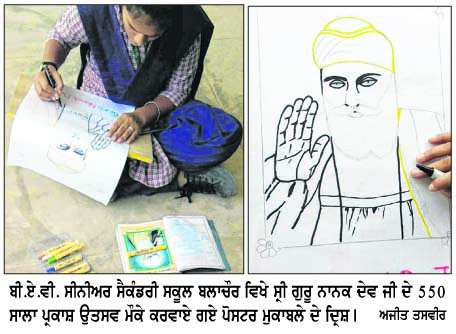 ਬੀ.ਏ.ਵੀ. ਸੀਨੀਅਰ ਸੈਕੰਡਰੀ ਸਕੂਲ ਬਲਾਚੌਰ ਵਿਖੇ ਸ੍ਰੀ ਗੁਰੂ ਨਾਨਕ ਦੇਵ ਜੀ ਦੇ 550
ਸਾਲਾ ਪ੍ਰਕਾਸ਼ ਉਤਸਵ ਮੌਕੇ ਕਰਵਾਏ ਗਏ ਪੋਸਟਰ ਮੁਕਾਬਲੇ ਦੇ ਦ੍ਰਿਸ਼। ਅਜੀਤ ਤਸਵੀਰ